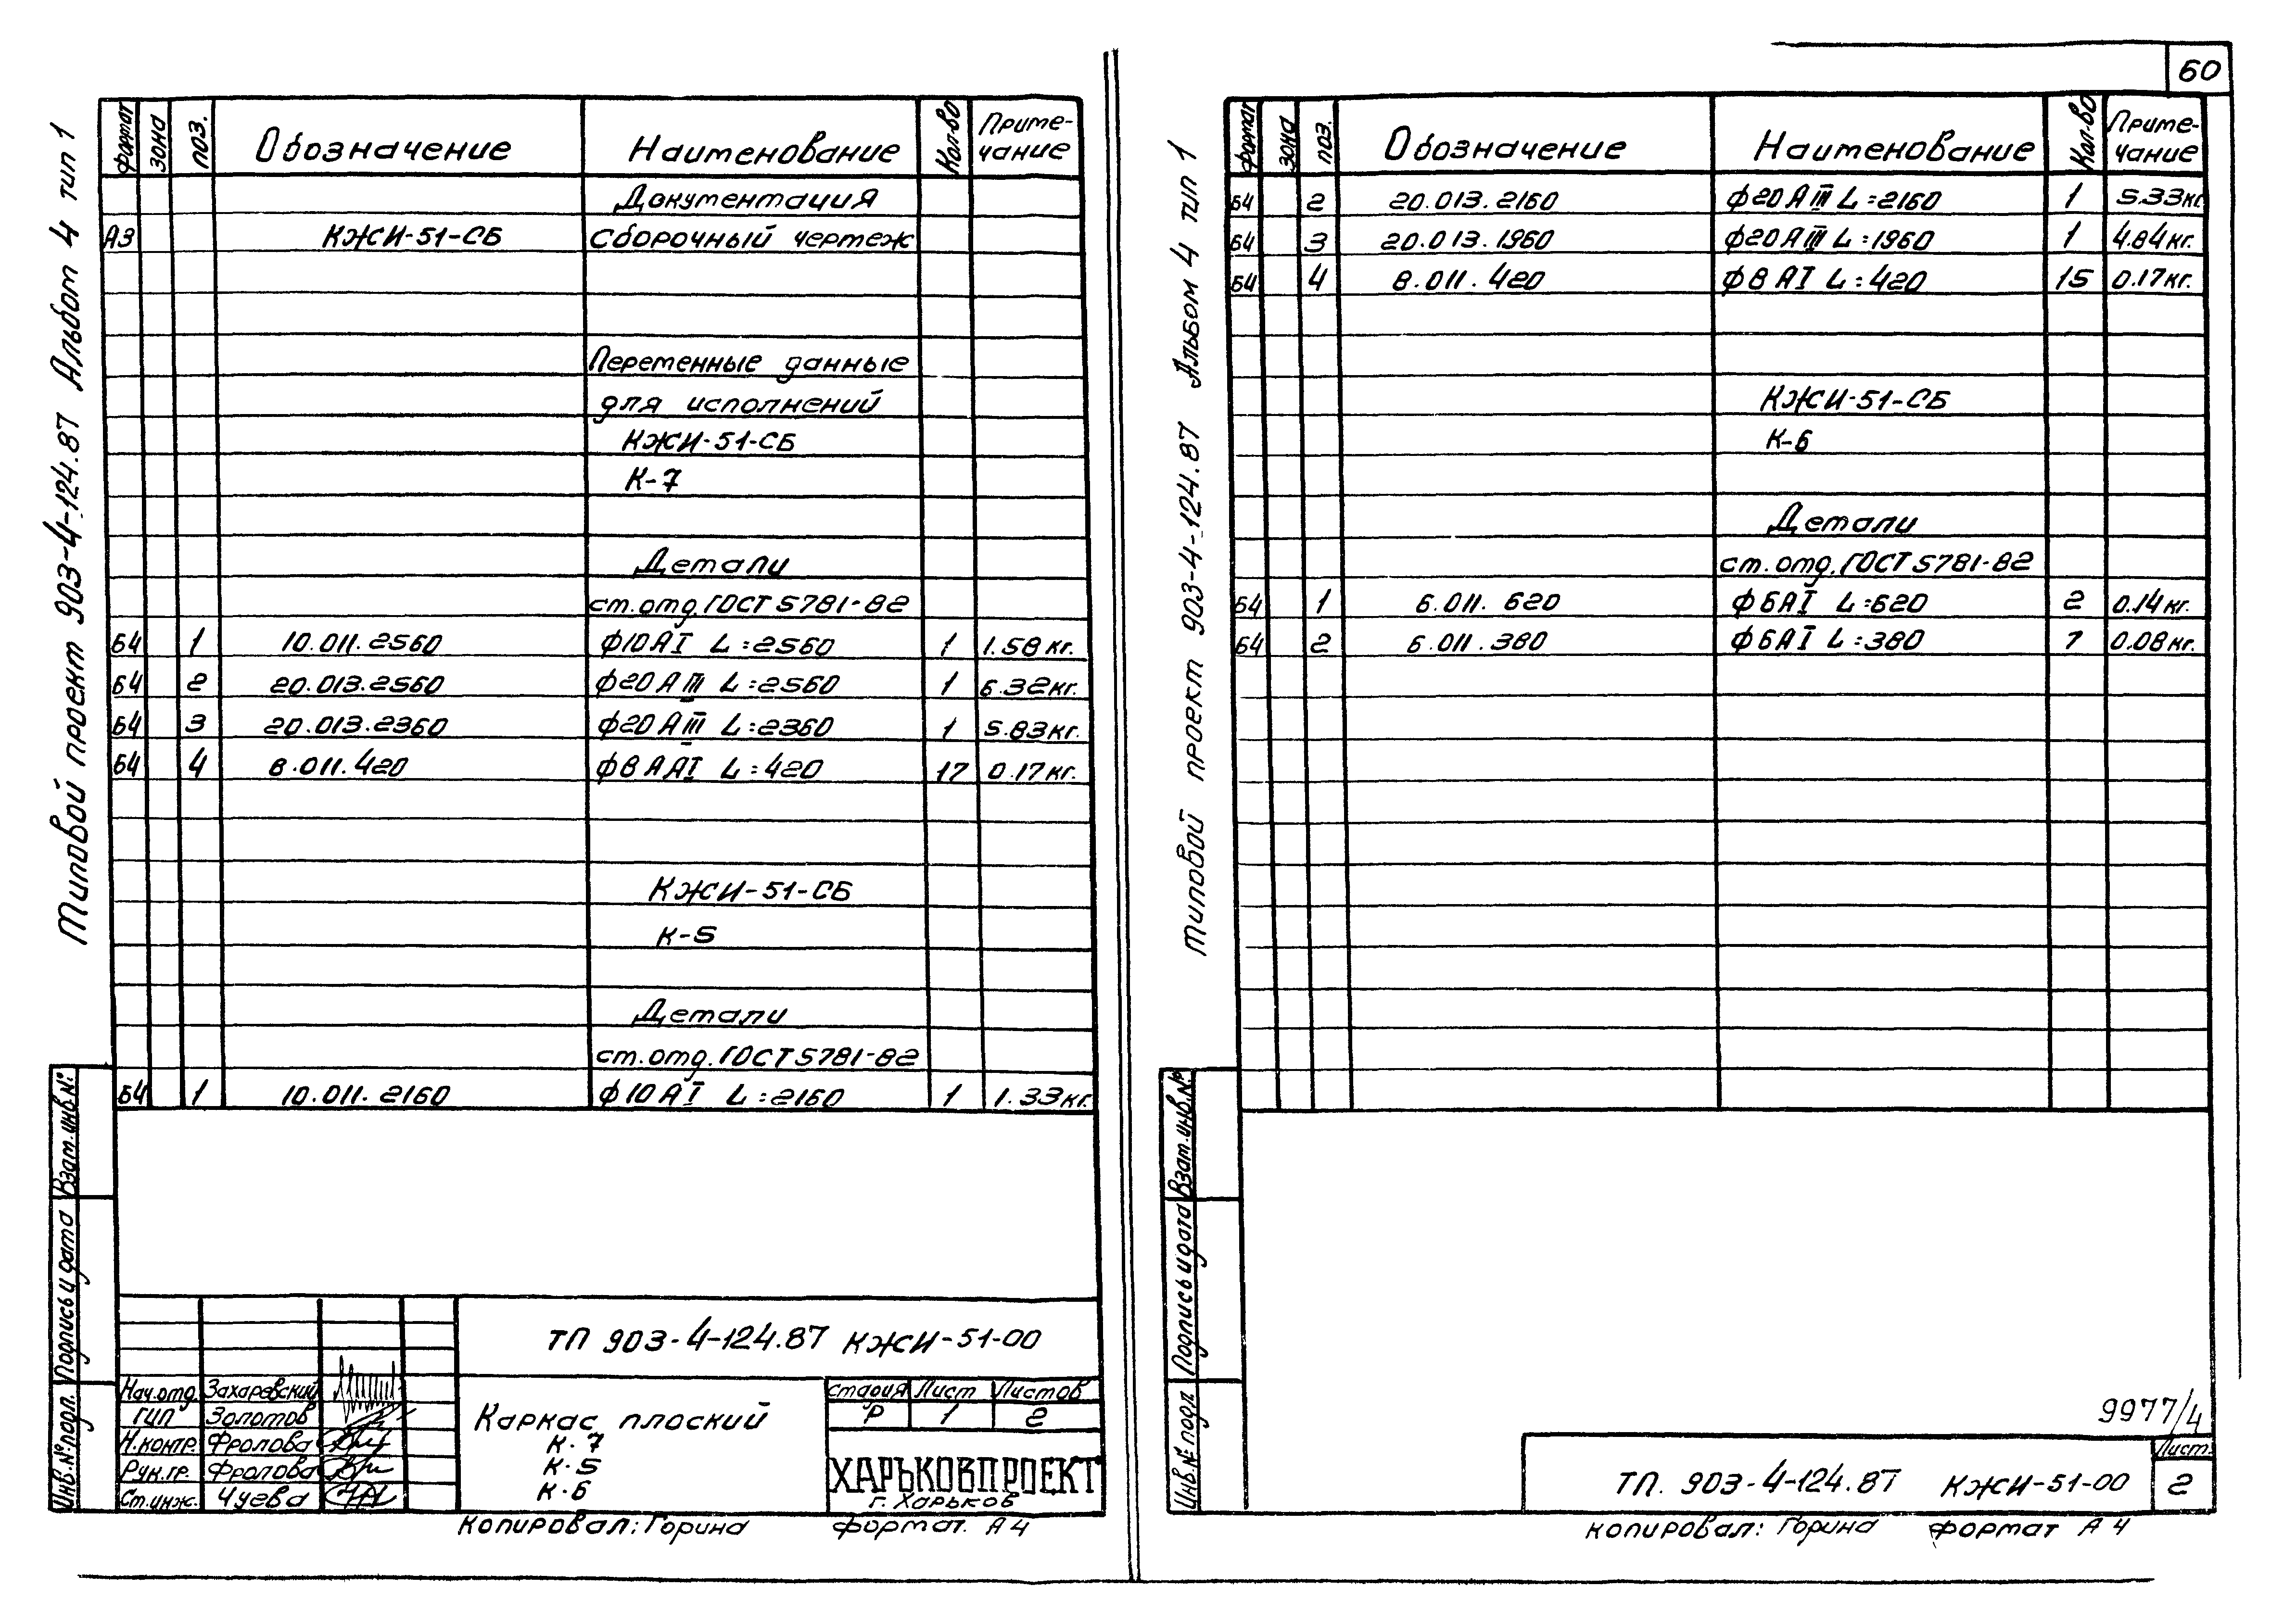 60
Типовой проект 903-4-124.87 Альбом 4 тип 1
формат зона поз. Обозначение Наименование Кол-во Приме-чание
Документация
А3 КЖСИ-51-СБ Сборочный чертеж
Переменные данные
для исполнений
КЖСИ-51-СБ
К-7
Детали
ст.отд.ГОСТ 5781-82
Б4 1 10.011.2560 ф10АI L=2560 1 1.58кг.
Б4 2 20.013.2560 ф20АIII L=2560 1 6.32кг.
Б4 3 20.013.2360 ф20АIII L=2360 1 5.83кг.
Б4 4 8.011.420 ф8ААI L=420 17 0.17кг.
КЖСИ-51-СБ
К-5
Детали
ст.отд.ГОСТ 5781-82
Б4 1 10.011.2160 ф10АI L=2160 1 1.33кг.
Взам.инв.№:
Подпись и дата
Инв.№подл.
ТП 903-4-124.87 КЖСИ-51-00
Нач.отд. Захаревский
ГИП Золотов
Н.контр. Фролова
Рук.гр. Фролова
Ст.инж. Чуева
Каркас плоский
К-7
К-5
К-6
стадия Лист Листов
Р 1 2
ХАРЬКОВПРОЕКТ
г.Харьков
копировал: Горина формат. А4
Типовой проект 903-4-124.87 Альбом 4 тип 1
формат зона поз. Обозначение Наименование Кол-во Приме-чание
Б4 2 20.013.2160 ф20АIII L=2160 1 5.33кг
Б4 3 20.013.1960 ф20АIII L=1960 1 4.84кг.
Б4 4 8.011.420 ф8АI L=420 15 0.17кг.
КЖСИ-51-СБ
К-6
Детали
ст.отд.ГОСТ 5781-82
Б4 1 6.011.620 ф6АI L=620 2 0.14кг.
Б4 2 6.011.380 ф6АI L=380 7 0.08кг.
Взам.инв.№
Подпись и дата
Инв.№ подл
9977/4
ТП. 903-4-124.87 КЖСИ-51-00
Лист.
2
копировал: Горина формат А4